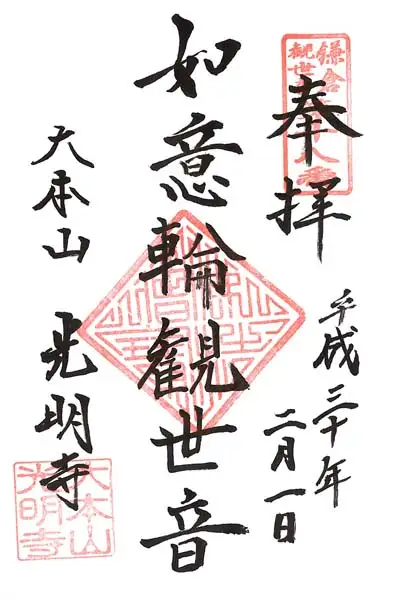 奉拝
平成三十年
二月一日
如意輪観世音
大本山 光明寺
大本山
光明寺